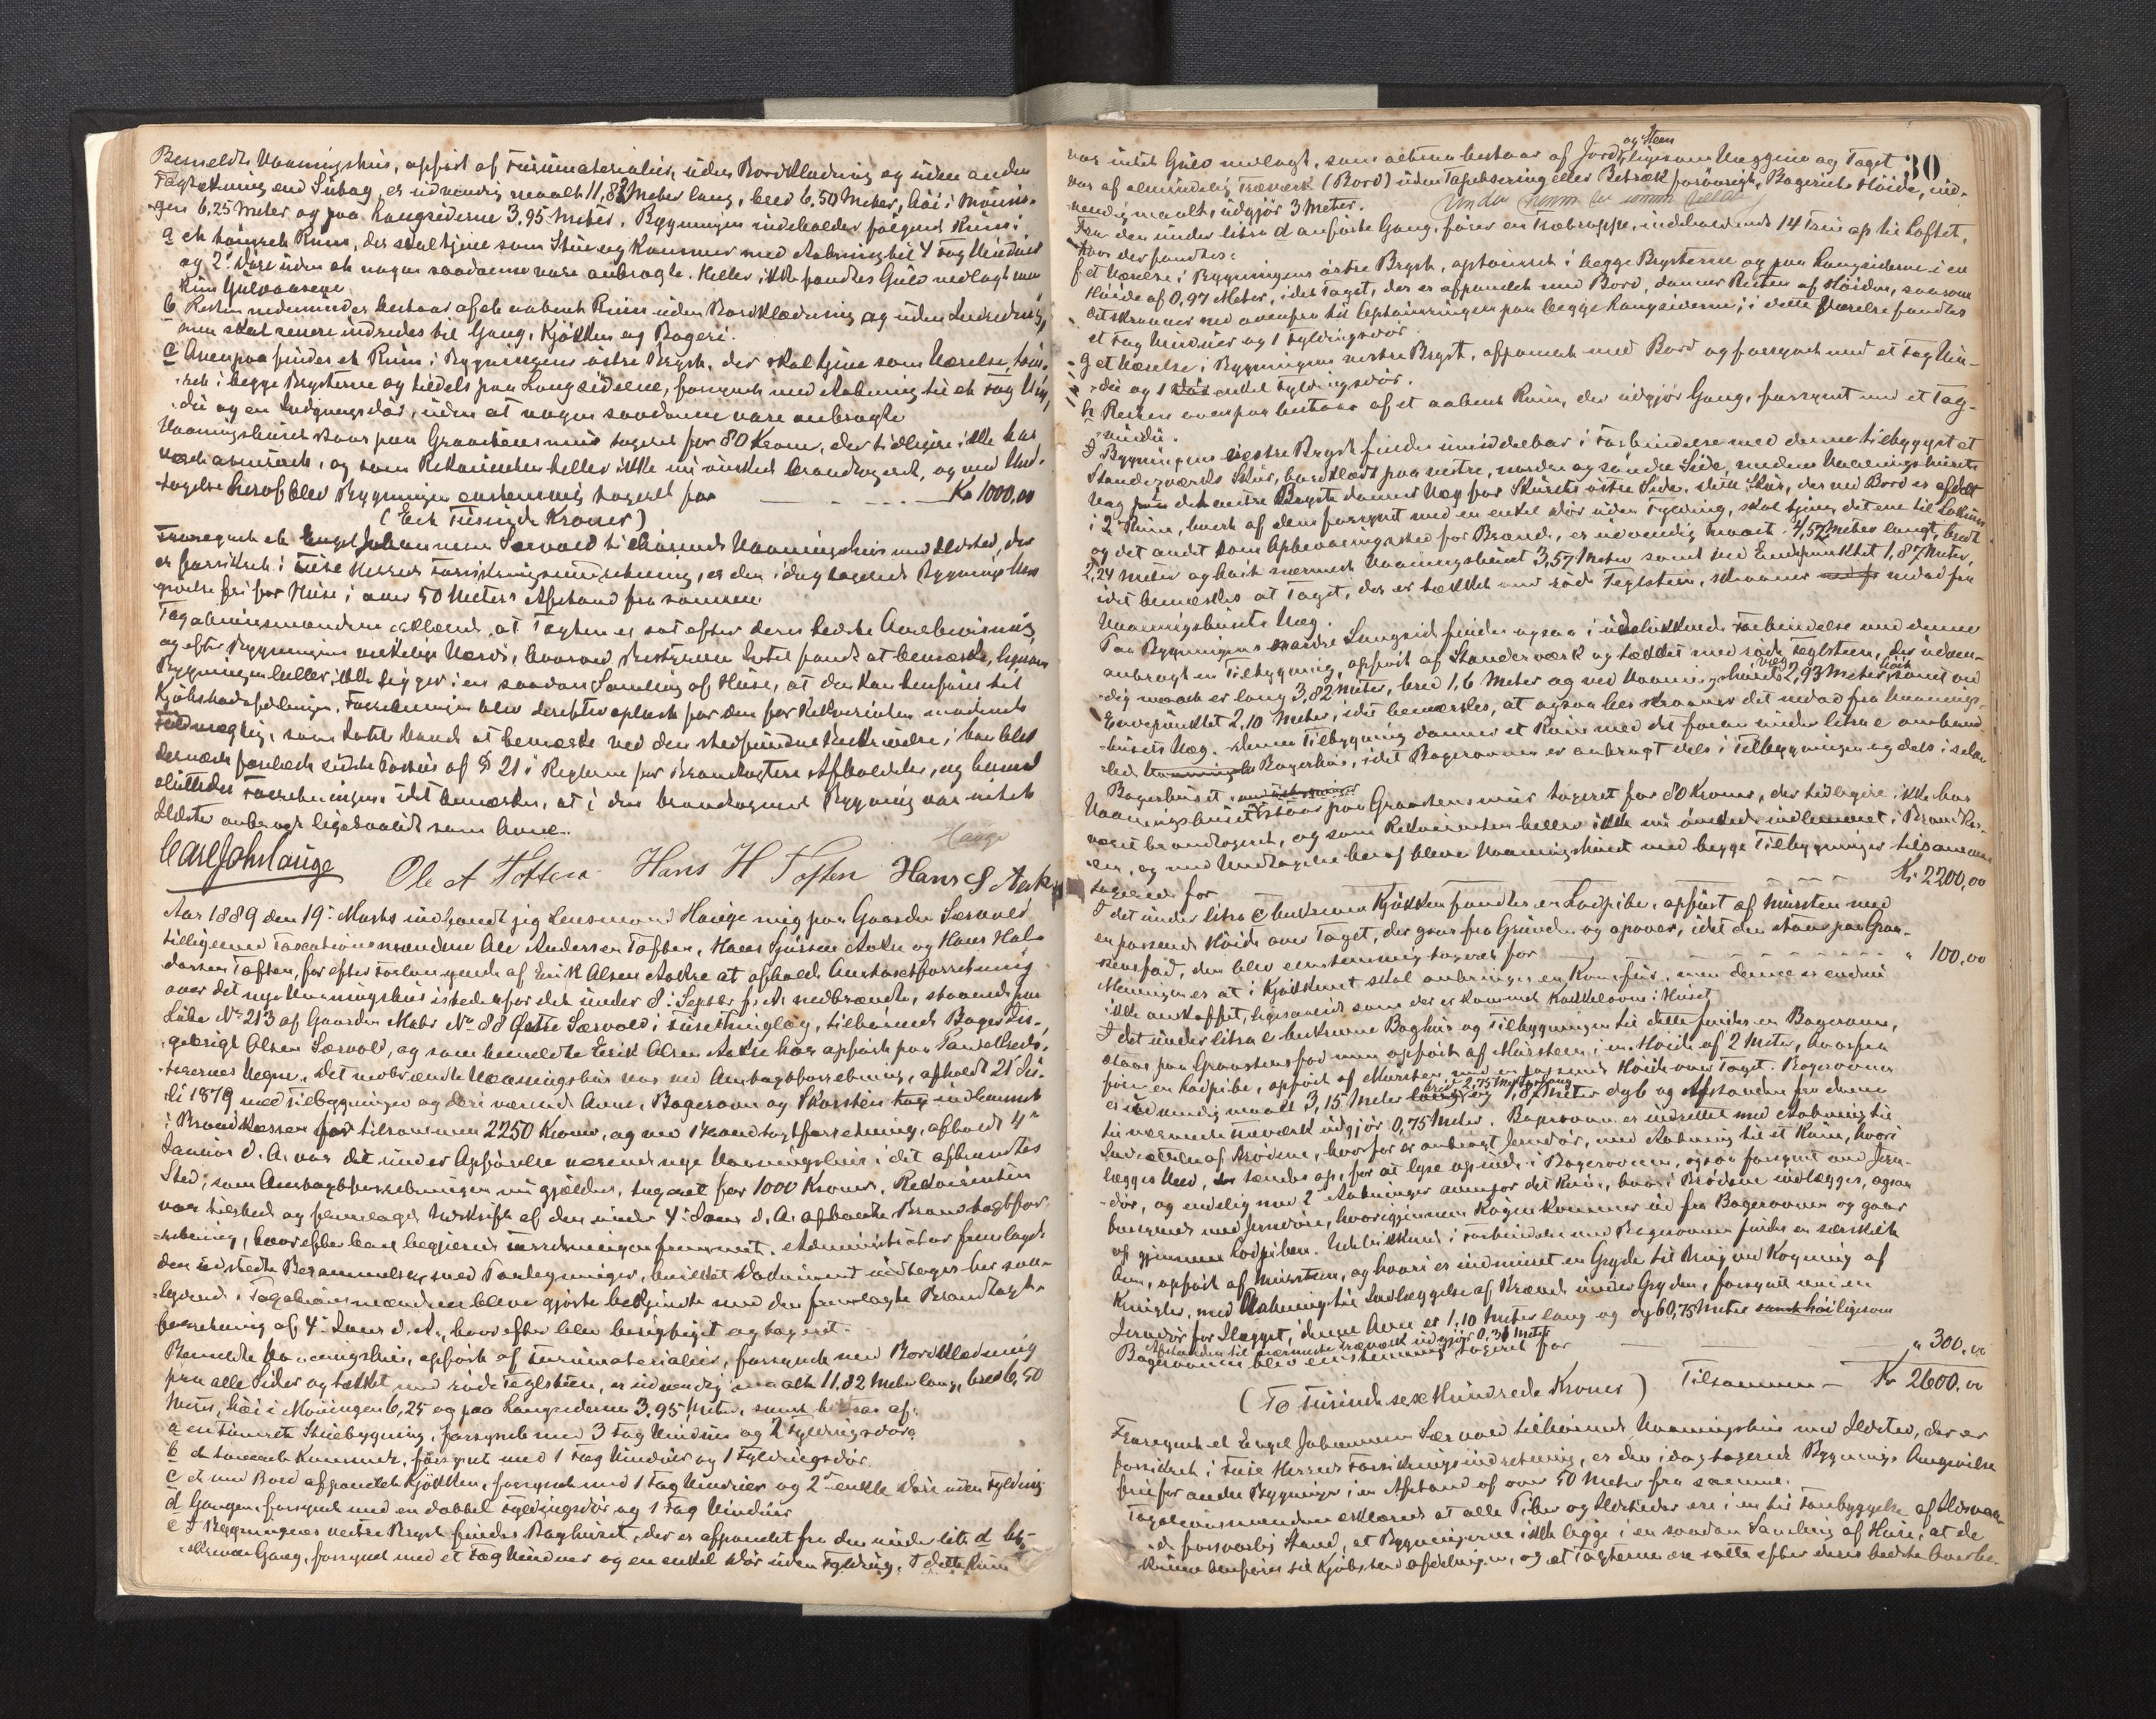 Bemeldte Vaaningshus, opført af Furumaterialier, uden Bordklædning og uden anden
Tagtækning end Sutag, er udvendig maalt 11,82 Meter lang, bred 6,50 Meter, høi i Mønin-
gen 6,25 Meter og paa Langsiderne 3,95 Meter. Bygningen indeholder følgende Rum:
a et tømret Rum, der skal tjene som Stue og Kammer med Aabning til 4 Fag Vinduer
og 2de Døre uden at nogen saadanne vare anbragte. Heller ikke fandtes Gulv nedlagt men
kun Gulvaasene
b Resten nedenunder bestaar af et aabent Rum uden Bordklædning og uden Indredning,
men skal senere indredes til Gang, Kjøkken og Bageri.
c Ovenpaa findes et Rum i Bygningens østre Bryst, der skal tjene som Værelse, tøm-
ret i begge Brysterne og tildels paa Langsiderne, forsynet med Aabning til et Fag Vin-
due og en Indgangsdør, uden at nogen saadanne vare anbragte
Vaaningshuset staar paa Graastensmur taxeret for 80 Kroner, der tidligere ikke har
været assureret, og som Rekvirenten heller ikke nu ønsked brandtaxeret, og med Und-
tagelse heraf blev Bygningen enstemmig taxeret for Kr 1000,00
(Eet Tusinde Kroner)
Fraregnet et Engel Johannesen Særvold tilhørende Vaaningshus med Ildsted, der
er forsikret i Fuse Herreds Forsikringsindretning, er den idag taxerede Bygnings Om-
givelse fri for Huse i over 50 Meters Afstand fra samme
Taxationsmændene erklærede, at Taxten er sat efter deres bedste Overbevisning,
og efter Bygningens virkelige Værdi, hvorved Bestyreren Intet fandt at bemærke, ligesom
Bygningen heller ikke ligger i en saadan Samling af Huse, at den kan henføres til
Kjøbstadafdelingen. Forretningen blev derefter oplæst for den for Rekvirenten mødende
Fuldmægtig, som Intet havde at bemærke ved den stedfundne Beskrivelse; han blev
dernæst forelæst sidste Passus af § 21 i Reglerne for Brandtaxters Afholdelse, og hermed
sluttedes Forretningen, idet bemærkes, at i den brandtaxerede Bygning var intet
Ildsted anbragt ligesaalidt som Ovne.
Hauge
Carl Joh Lange Ole A Toften Hans H Toften Hans S Aakre
Aar 1889 den 19de Marts indfandt sig Lensmand Hauge sig paa Gaarden Særvold
tilligemed Taxationsmændene Ole Andersen Toften, Hans Sjursen Aakre og Hans Hal-
dorsen Toften, for efter Forlangende af Erik Olsen Aakre at afholde Omtaxtforretning
over det nye Vaaningshus istedetfor det under 8de Septbr f. A. nedbrændte, staaende paa
Løbe No 213 af Gaarden Matr No 88 Østre Særvold i Fuse Thinglag, tilhørende Bager In-
gebrigt Olsen Særvold, og som bemeldte Erik Olsen Aakre har opført paa Panthaver-
tagernes Vegne. Det nedbrændte Vaaningshus var ved Omtaxtforretning, afholdt 21de Ju-
li 1879 med Tilbygninger og deri værende Ovne, Bagerovn og Skorsten indlemmet
i Brandkassen for tilsammen 2250 Kroner, og ved Brandtaxtforretning, afholdt 4de
Januar d. A. var det under Opførelse værende nye Vaaningshus i det afbrændtes
Sted, som Omtaxtforretningen nu gjælder, taxeret for 1000 Kroner. Rekvirenten
var tilsted og fremlagde Udskrift af den under 4de Janr d. A. afholdte Brandtaxtfor-
retning, hvorefter han begjærede Forretningen fremmet. Administrator fremlagde
den udstedte Berammelse med Paategninger, hvilket Dokument indtages her saa-
lydende: Taxationsmændene bleve gjorte bekjendte med den fremlagte Brandtaxt-
forretning af 4de Janr d. A., hvorefter blev besigtiget og taxeret.
Bemeldte Vaaningshus, opført af Furumaterialier, forsynet med Bordklædning
paa alle Sider og tækket med røde Teglsten, er udvendig maalt 11,82 Meter lang, bred 6,50
Meter, høi i Møningen 6,25 og paa Langsiderne 3,95 Meter, samt bestaar af:
a en tømret Stuebygning, forsynet med 3 Fag Vinduer og 2 Fyldingsdøre
b et tømret Kammer, forsynet med 1 Fag Vinduer og 1 Fyldingsdør.
c et med Bord afpanelet Kjøkken, forsynet med 1 Fag Vinduer og 2de enkle Døre uden Fylding
d Gangen, forsynet med en dobbel Fyldingsdør og 1 Fag Vinduer
e I Bygningens vestre Bryst findes Baghuset, der er afpanelet fra den under litr. d be-
skrevne Gang, forsynet med et Fag Vinduer og en enkel Dør uden Fylding. I dette Rum
30
var intet Gulv nedlagt, som altsaa bestaar af Jord og Sten, ligesom Væggene og Taget
var af almindelig Træværk (Bord) uden Tapetsering eller Betræk forøvrigt. Bageriets Høide, ind-
vendig maalt, udgjør 3 Meter.
Fra den under litra d anførte Gang, fører en Trætrappe, indeholdende 14 Trin op til Loftet,
hvor der fandtes:
f et Værelse i Bygningens østre Bryst, optømret i begge Brysterne og paa Langsiderne i en
Høide af 0,97 Meter, idet Taget, der er afpanelet med Bord, danner Resten af Høiden, saasom
det skraaner ned ovenfra til Optømringen paa begge Langsiderne; i dette Værelse fandtes
et Fag Vinduer og 1 Fyldingsdør.
g et Værelse i Bygningens vestre Bryst, afpanelet med Bord og forsynet med et Fag Vin-
due og 1 enkel Fyldingsdør.
h Resten ovenpaa bestaar af et aabent Rum, der udgjør Gang, forsynet med et Tag-
vindu.
I Bygningens vestre Bryst findes umiddelbar i Forbindelse med denne tilbygget et
Standerværks Skur, bordklædt paa vestre, nordre og søndre Side, medens Vaaningshusets
Væg paa det vestre Bryst danner Væg for Skurets østre Side. Dette Skur, der ved Bord er afdelt
i 2 Rum, hvert af dem forsynet med en enkel Dør uden Fylding, skal tjene, det ene til Lokum
og det andet som Opbevaringssted for Brænde, er udvendig maalt 4,52 Meter langt, bredt
2,24 Meter og høit nærmest Vaaningshuset 3,57 Meter samt ved Endepunktet 1,87 Meter,
idet bemærkes at Taget, der er tækket med røde Teglsten, skraaner nedad fra
Vaaningshusets Væg.
Paa Bygningens nordre Langside findes ogsaa i udelukkende Forbindelse med denne
anbragt en Tilbygning, opført af Standerværk og tækket med røde Teglsten, der udven-
dig maalt er lang 3,82 Meter, bred 1,6 Meter og ved Vaaningshusets Væg 2,93 Meter høit samt ved
Endepunktet 2,10 Meter, idet bemærkes, at ogsaa her skraaner det nedad fra Vaanings-
husets Væg. Denne Tilbygning danner et Rum med det foran under litra e omhand-
lede Bagerhus, idet Bagerovnen er anbragt dels i Tilbygningen og dels i selve
Bagerhuset.
Vaaningshuset staar paa Graastensmur taxeret for 80 Kroner, der tidligere ikke har
været brandtaxeret, og som Rekvirenten heller ikke nu ønskede indlemmet i Brandkas-
sen, og med Undtagelse heraf bleve Vaaningshuset med begge Tilbygninger tilsammen
taxerede for Kr 2200,00
I det under litra c beskrevne Kjøkken fandtes en Lodpibe, opført af Mursten med
en passende Høide over Taget, der gaar fra Grunden og opover, idet den staar paa Graa-
stensfod, den blev enstemmig taxeret for " 100,00
Meningen er at i Kjøkkenet skal anbringes en Komfur, men denne er endnu
ikke anskaffet, ligesaalidt som der er kommet Kakkelovne i Huset
I det under litra e beskrevne Baghus og Tilbygningen til dette findes en Bagerovn,
staar paa Graastensfod men opført af Mursten i en Høide af 2 Meter, hvorfra
fører en Lodpibe, opført af Mursten med en passende Høide over Taget. Bagerovnen
er udvendig maalt 3,15 Meter lang, bred 2,75 Meter og 1,87 Meter dyb og Afstanden fra denne
til nærmeste Træværk udgjør 0,75 Meter. Bagerovnen er indrettet med Aabning til
Indsættelse af Brødene, hvorfor er anbragt Jerndør, med Aabning til et Rum, hvori
lægges Ved, der tændes op, for at lyse op inde i Bagerovnen, ogsaa forsynet med Jern-
dør, og endelig med 2de Aabninger ovenfor det Rum, hvori Brødene indlægges, ogsaa
forsynede med Jerndøre, hvorigjennem Røgen kommer ud fra Bagerovnen og gaar
op gjennem Lodpiben. Udelukkende i Forbindelse med Bagerovnen findes en særskilt
Ovn, opført af Mursten, og hvori er indmuret en Gryde til Brug ved Kogning af
Kringler, med Aabning til Indlæggelse af Brænde under Gryden, forsynet med en
Jerndør for Ilægget; denne Ovn er 1,10 Meter lang og dyb 0,75 Meter ligesom
Afstanden til nærmeste Træværk udgjør 0,31 Meter
Bagerovnen blev enstemmig taxeret for " 300,00
(To Tusinde sex Hundrede Kroner) Tilsammen – Kr 2600,00
Fraregnet et Engel Johannesen Særvold tilhørende Vaaningshus med Ildsted, der er
forsikret i Fuse Herreds Forsikringsindretning, er den idag taxerede Bygnings Omgivelse
fri for andre Bygninger i en Afstand af over 50 Meter fra samme.
Taxationsmændene erklærede at alle Piber og Ildsteder ere i en til Forebyggelse af Ildsvaa-
de forsvarlig Stand, at Bygningerne ikke ligge i en saadan Samling af Huse, at de
kunne henføres til Kjøbstadafdelingen, og at Taxterne ere satte efter deres bedste Overbe-